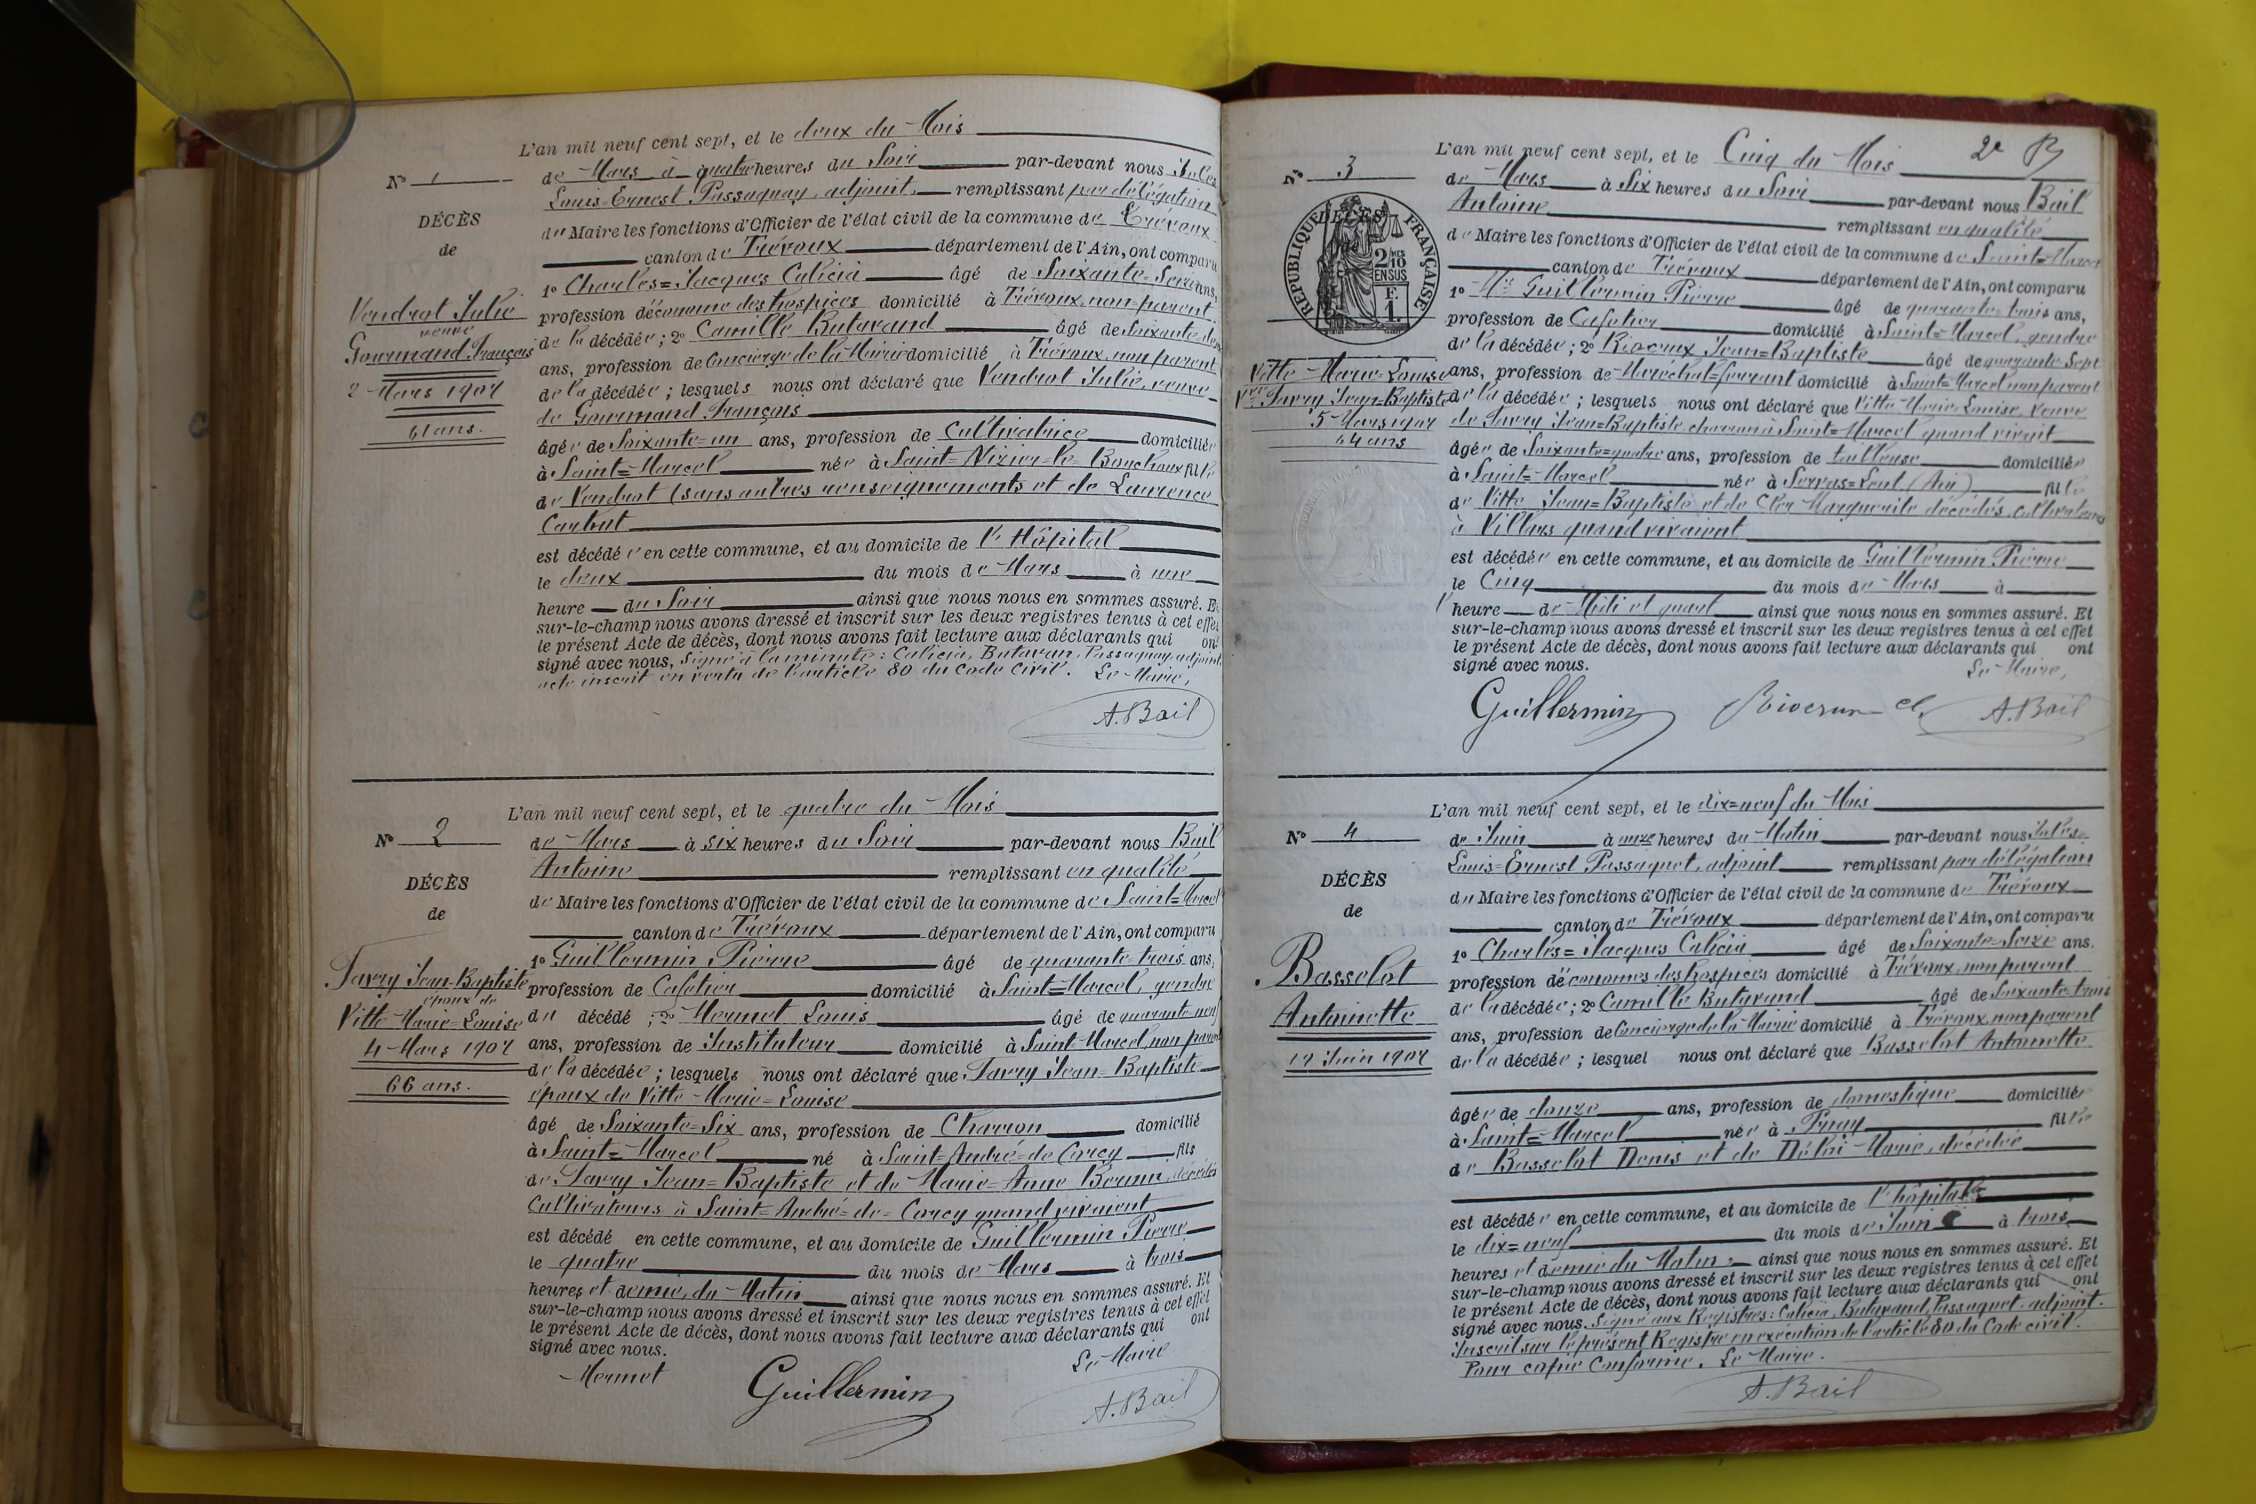 L'an mil neuf cent sept, et le deux du Mois
N° 1
de Mars à quatre heures du Soir par-devant nous Jules
Louis-Ernest Passaquay, adjoint, remplissant par délégation
DÉCÈS
du Maire les fonctions d'Officier de l'état civil de la commune de Trévoux
de
canton de Trévoux département de l'Ain, ont comparu
1° Charles=Jacques Calicia âgé de Soixante=Seize ans,
Vendrot Julie
profession d'économe des hospices domicilié à Trévoux, non parent
veuve
de la décédée ; 2° Camille Butavand âgé de soixante-deux
Gourmand François
ans, profession de Concierge de la Mairie domicilié à Trévoux, non parent
2 Mars 1907
de la décédée ; lesquels nous ont déclaré que Vendrot Julie, veuve
de Gourmand François
61 ans.
âgée de Soixante=un ans, profession de Cultivatrice domiciliée
à Saint=Marcel née à Saint=Nizier=le=Bouchoux fille
de Vendrot (sans autres renseignements et de Laurence
est décédée en cette commune, et au domicile de l'Hôpital
le deux du mois de Mars à une
heure du Soir ainsi que nous nous en sommes assuré. Et
sur-le-champ nous avons dressé et inscrit sur les deux registres tenus à cet effet
le présent Acte de décès, dont nous avons fait lecture aux déclarants qui ont
signé avec nous, signé à la minute : Calicia, Butavan, Passaquay, adjoint
acte inscrit en vertu de l'article 80 du Code Civil. Le Maire,
A. Bail
L'an mil neuf cent sept, et le quatre du Mois
N° 2
de Mars à six heures du Soir par-devant nous Bail
Antoine remplissant en qualité
DÉCÈS
de Maire les fonctions d'Officier de l'état civil de la commune de Saint=Marcel
de
canton de Trévoux département de l'Ain, ont comparu
1° Guillermin Pierre âgé de quarante-trois ans,
Savry Jean-Baptiste
profession de Cafetier domicilié à Saint=Marcel, gendre
époux de
Vitte Marie=Louise
du décédé ; 2° Mermet Louis âgé de quarante neuf
4 Mars 1907
ans, profession de Instituteur domicilié à Saint-Marcel non parent
66 ans.
de la décédée ; lesquels nous ont déclaré que Savry Jean=Baptiste
époux de Vitte Marie=Louise
âgé de Soixante=Six ans, profession de Charron domicilié
à Saint=Marcel né à Saint=André=de Corcy fils
de Savry Jean=Baptiste et de Marie=Anne décédés
Cultivateurs à Saint=André=de=Corcy quand vivaient
est décédé en cette commune, et au domicile de Guillermin Pierre
le quatre du mois de Mars à trois
heures et demie du Matin ainsi que nous nous en sommes assuré. Et
sur-le-champ nous avons dressé et inscrit sur les deux registres tenus à cet effet
le présent Acte de décès, dont nous avons fait lecture aux déclarants qui ont
signé avec nous.
Le Maire
Mermet Guillermin A. Bail
2e
L'an mil neuf cent sept, et le Cinq du Mois
N° 3
de Mars à Six heures du Soir par-devant nous Bail
Antoine remplissant en qualité
DÉCÈS
de
RÉPUBLIQUE FRANÇAISE
2/10 EN SUS
F. 1.
de Maire les fonctions d'Officier de l'état civil de la commune de Saint=Marcel
canton de Trévoux département de l'Ain, ont comparu
1° Mr Guillermin Pierre âgé de quarante-trois ans,
profession de Cafetier domicilié à Saint=Marcel, gendre
de la décédée ; 2° Jean=Baptiste âgé de quarante Sept
Vitte Marie=Louise
ans, profession de Maréchal=ferrant domicilié à Saint=Marcel non parent
Vve Savry Jean=Baptiste
de la décédée ; lesquels nous ont déclaré que Vitte Marie Louise, veuve
5 Mars 1907
de Savry Jean=Baptiste charron à Saint=Marcel quand vivait
64 ans
âgée de Soixante=quatre ans, profession de tailleuse domiciliée
à Saint=Marcel née à Servas=Lent (Ain) fille
de Vitte Jean=Baptiste et de Marguerite décédés, cultivateurs
à Villars quand vivaient
est décédée en cette commune, et au domicile de Guillermin Pierre
le Cinq du mois de Mars à
heure de Midi et quart ainsi que nous nous en sommes assuré. Et
sur-le-champ nous avons dressé et inscrit sur les deux registres tenus à cet effet
le présent Acte de décès, dont nous avons fait lecture aux déclarants qui ont
signé avec nous.
Le Maire,
Guillermin A. Bail
L'an mil neuf cent sept, et le dix=neuf du Mois
N° 4
de Juin à onze heures du Matin par-devant nous Jules
Louis=Ernest Passaquet, adjoint remplissant par délégation
DÉCÈS
du Maire les fonctions d'Officier de l'état civil de la commune de Trévoux
de
canton de Trévoux département de l'Ain, ont comparu
1° Charles=Jacques Calicia âgé de Soixante=Seize ans.
Basselot
profession d'économes des hospices domicilié à Trévoux, non parent
Antoinette
de la décédée ; 2° Camille Butavand âgé de Soixante-trois
ans, profession de Concierge de la Mairie domicilié à Trévoux, non parent
19 Juin 1907
de la décédée ; lesquel nous ont déclaré que Basselot Antoinette
âgée de douze ans, profession de domestique domiciliée
à Saint=Marcel née à fille
de Basselot Denis et de Marie, décédée
est décédée en cette commune, et au domicile de l'hôpital
le dix=neuf du mois de Juin à trois
heures et demie du Matin ainsi que nous nous en sommes assuré. Et
sur-le-champ nous avons dressé et inscrit sur les deux registres tenus à cet effet
le présent Acte de décès, dont nous avons fait lecture aux déclarants qui ont
signé avec nous. Signé aux Registres : Calicia, Butavand, Passaquet, adjoint.
Inscrit sur le présent Registre en exécution de l'article 80 du Code civil.
Pour copie Conforme. Le Maire.
A. Bail